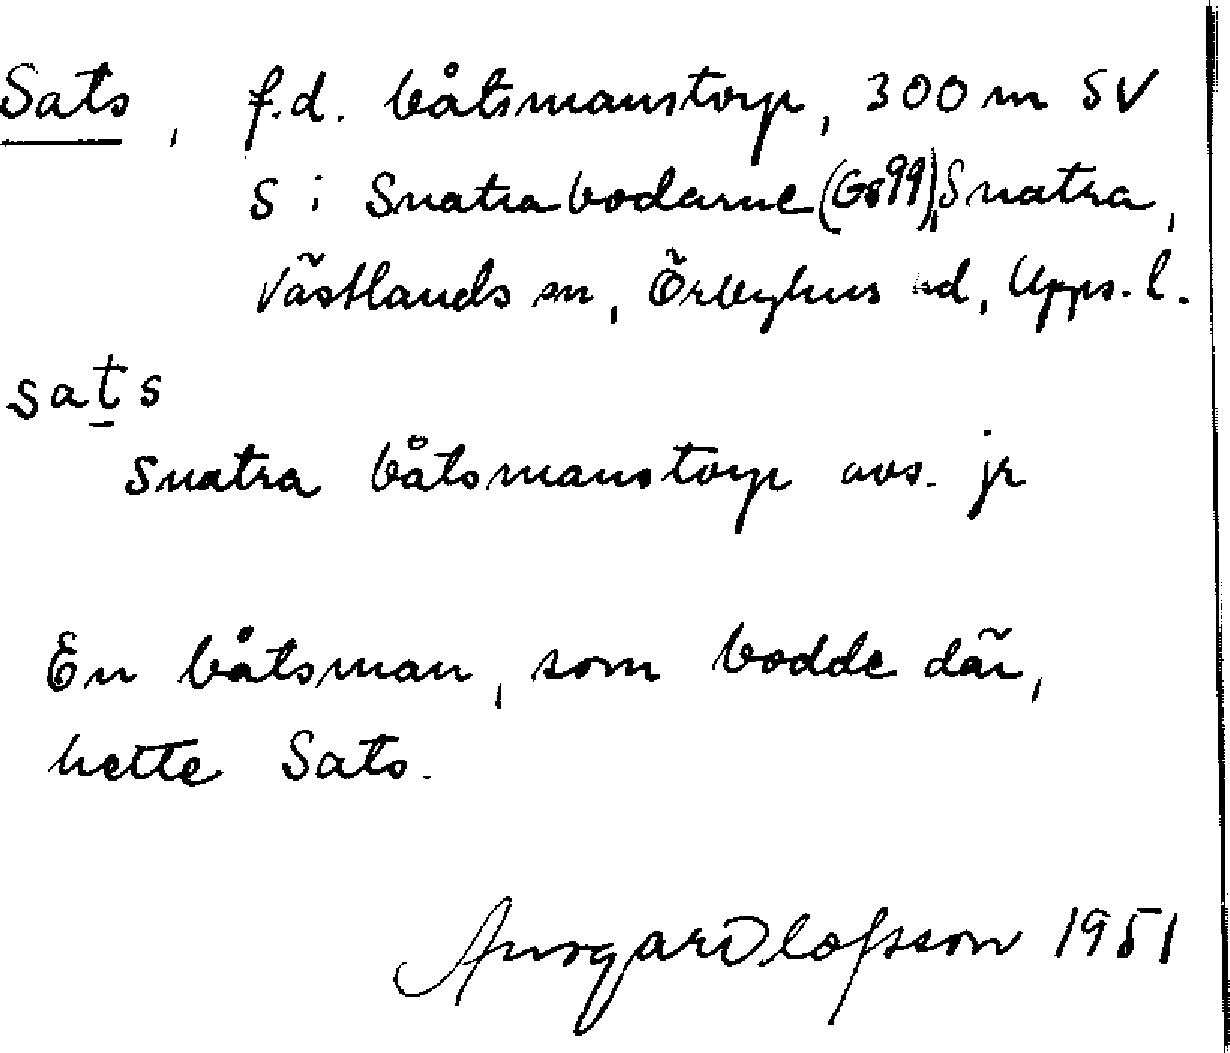 Sats, f.d. båtsmanstorp, 300 m SV
S i Snatrabodarne (Gs99), Snatra,
Västlands sn, Örbyhus hd, Upps. l.
sats
Snatra båtsmanstorp avs. jr
En båtsman, som bodde där,
hette Sats.
Ansgar Olofsson 1951